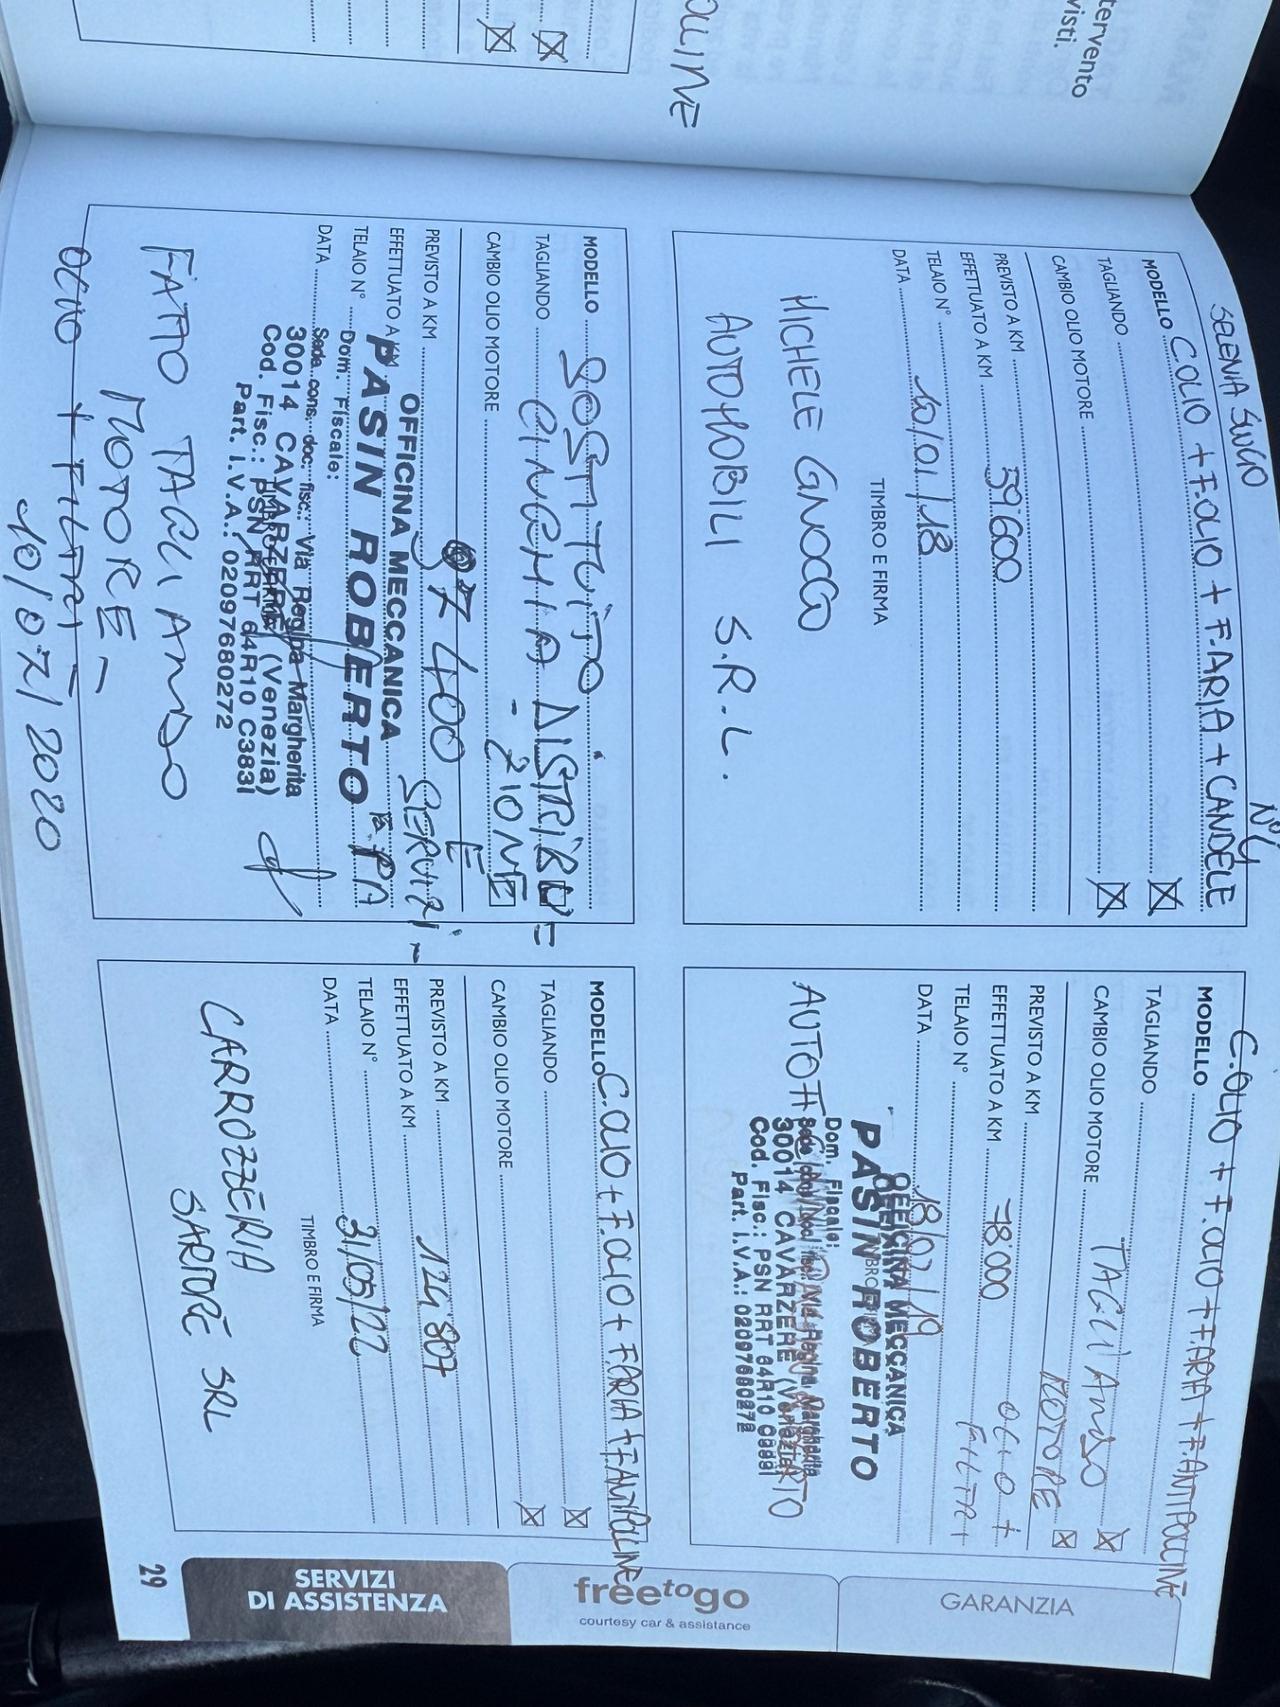 tervento
visti.
OLLINE
SELENIA SUGO
N°4
C.OLIO + F.OLIO + F.ARIA + CANDELE
MODELLO
TAGLIANDO
CAMBIO OLIO MOTORE
PREVISTO A KM
EFFETTUATO A KM 59'600
TELAIO N°
DATA 10/01/18
TIMBRO E FIRMA
MICHELE GNOCCO
AUTOMOBILI S.R.L.
C.OLIO + F.OLIO + F.ARIA + F.ANTIPOLLINE
MODELLO
TAGLIANDO
CAMBIO OLIO MOTORE TAGLIANDO
MOTORE
PREVISTO A KM
EFFETTUATO A KM 78'000 OLIO +
TELAIO N° FILTRI
DATA 18/02/19
OFFICINA MECCANICA
PASIN ROBERTO
Dom. Fiscale:
30014 CAVARZERE (Venezia)
Cod. Fisc.: PSN RRT 64R10 C383I
Part. I.V.A.: 02097680272
MODELLO SOSTITUITO
TAGLIANDO CINGHIA DISTRIBU=
CAMBIO OLIO MOTORE - ZIONE
E
PREVISTO A KM 97400 SERVIZI -
EFFETTUATO A KM
TELAIO N°
DATA
OFFICINA MECCANICA
PASIN ROBERTO
Dom. Fiscale:
Sede cons. doc. fisc.: Via Regina Margherita
30014 CAVARZERE (Venezia)
Cod. Fisc.: PSN RRT 64R10 C383I
Part. I.V.A.: 02097680272
FATTO TAGLIANDO
MOTORE -
OLIO + FILTRI
10/07/2020
MODELLO C.OLIO + F.OLIO + F.ARIA + F.ANTIPOLLINE
TAGLIANDO
CAMBIO OLIO MOTORE
PREVISTO A KM 124'807
EFFETTUATO A KM
TELAIO N° 31/05/22
DATA
TIMBRO E FIRMA
CARROZZERIA
SARTORE SRL
GARANZIA
freetogo
courtesy car & assistance
SERVIZI
DI ASSISTENZA
29